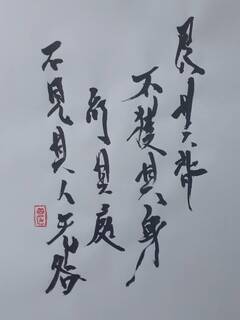 艮其背
不獲其身
行其庭
不見其人无咎